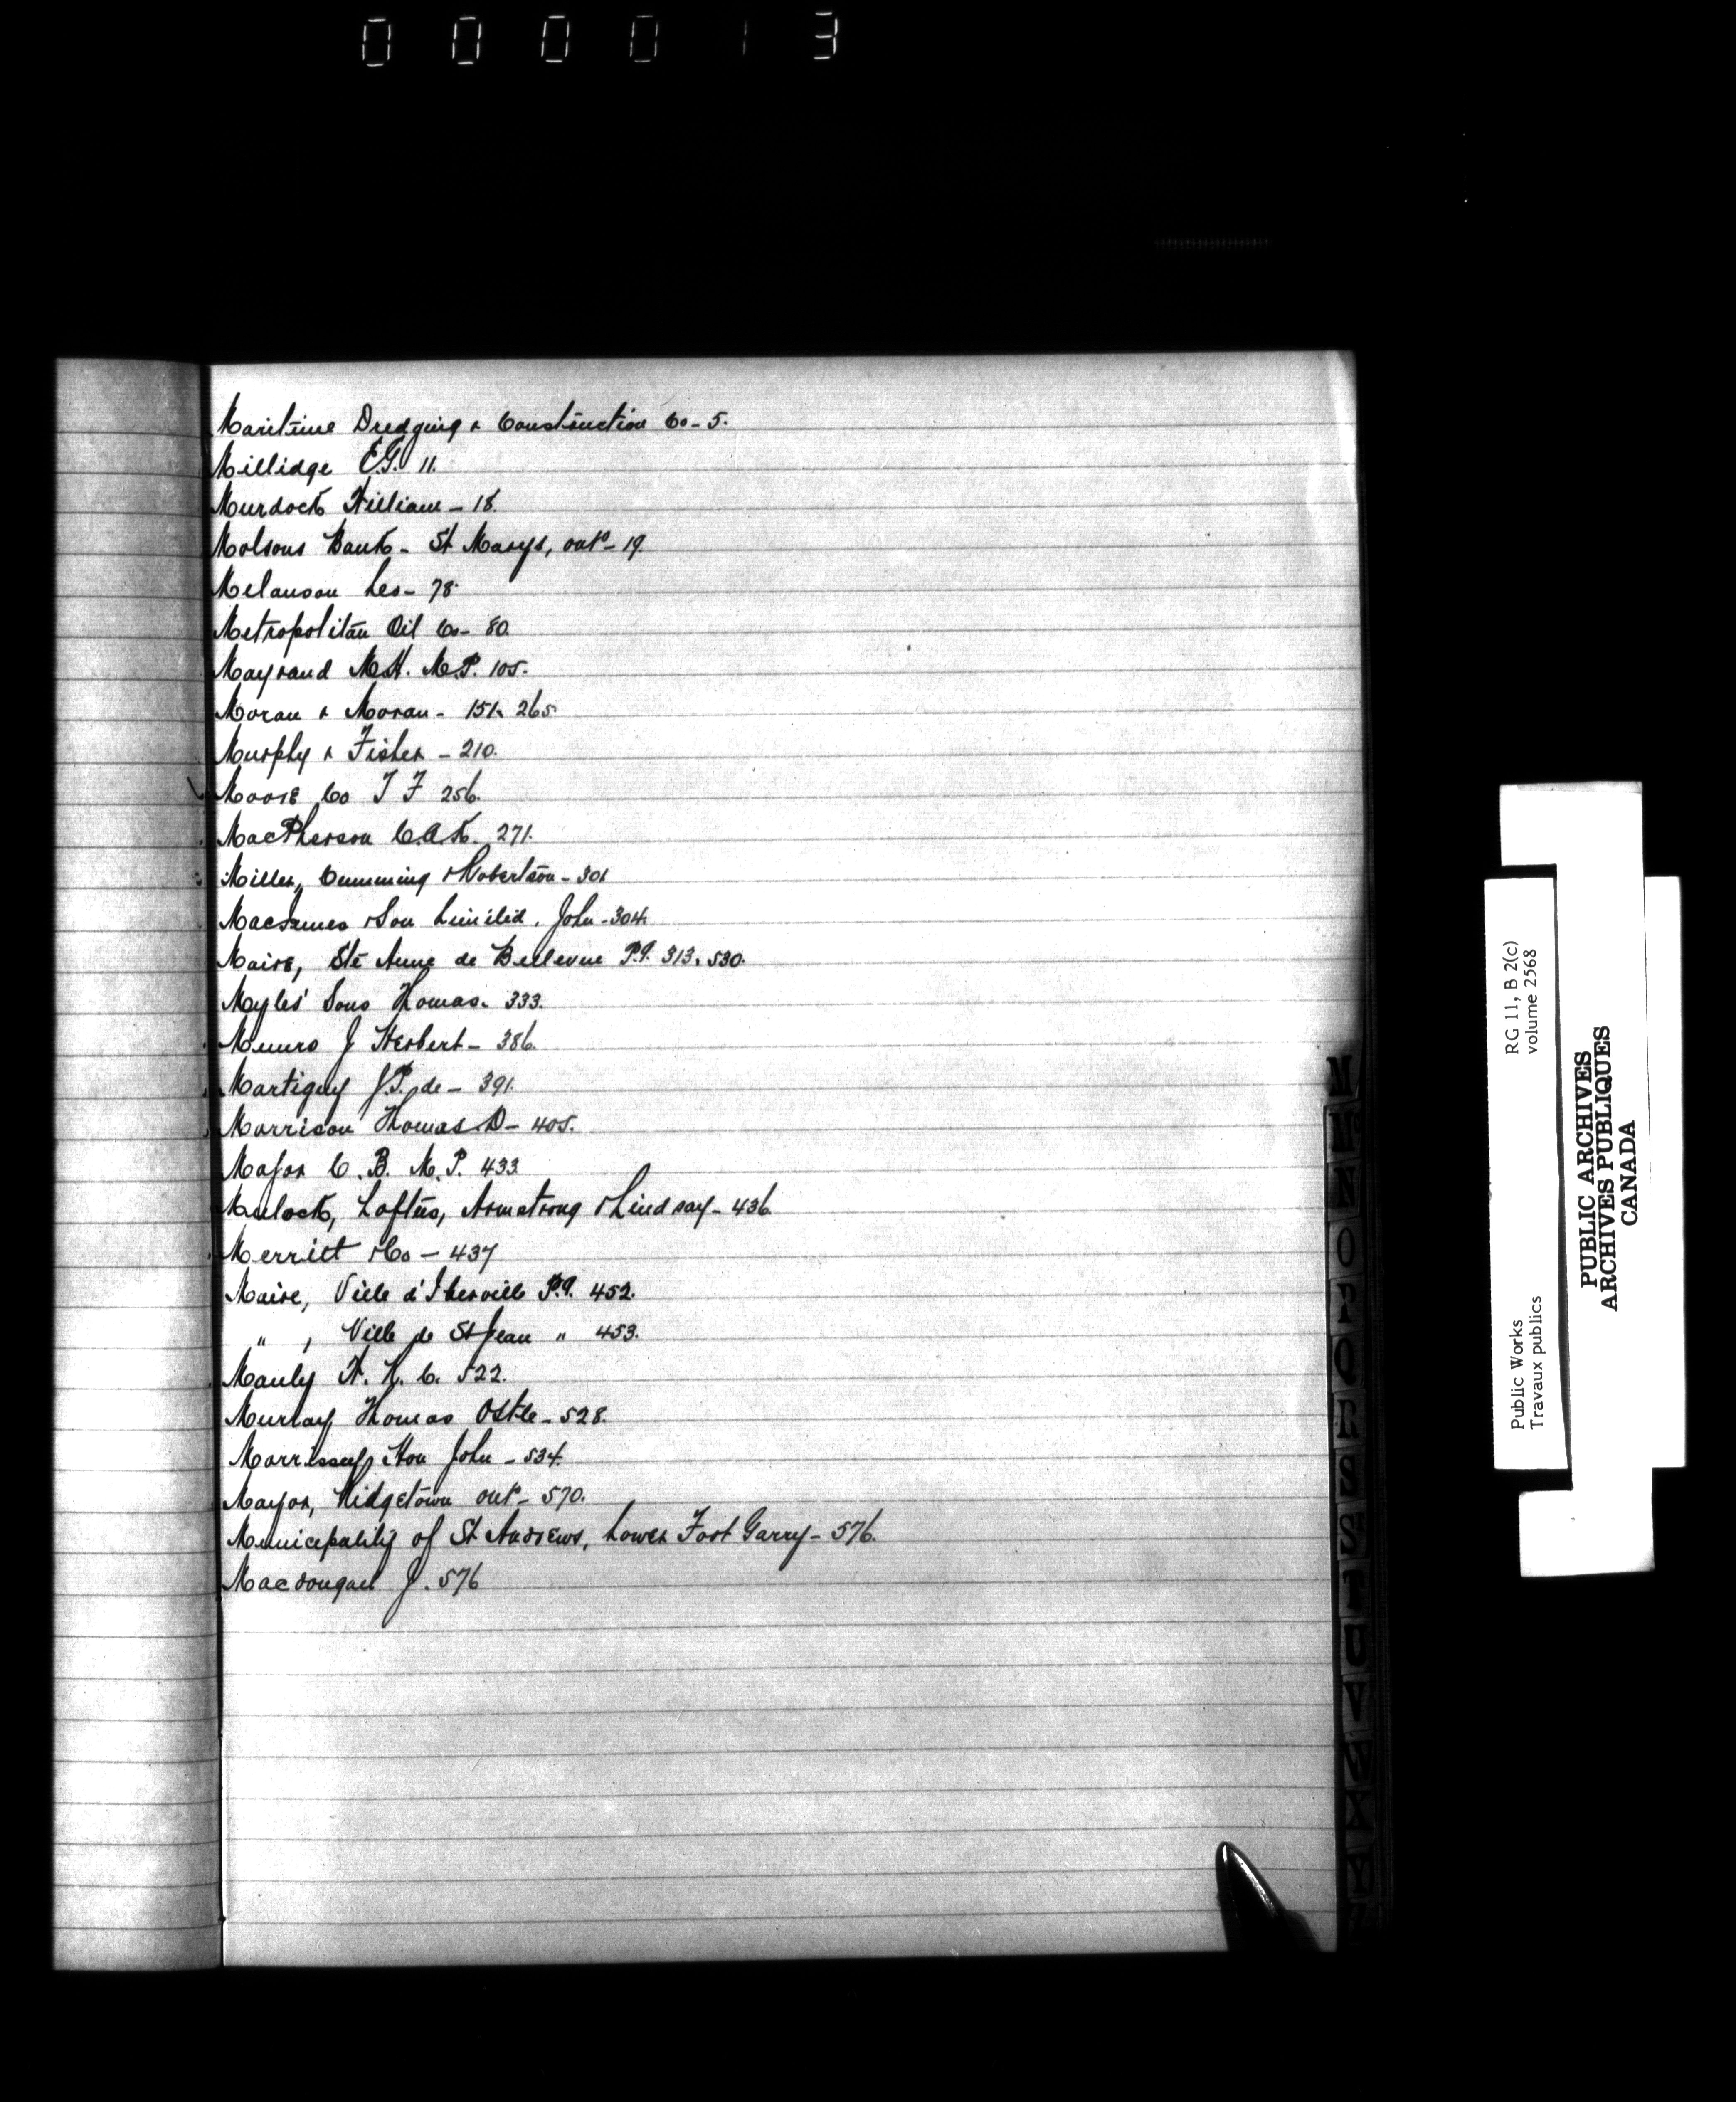 000013
Maritime Dredging & Construction Co - 5.
Millidge E.G. 11.
Murdock William - 18.
Molsons Bank - St Marys, ont - 19.
Melanson Leo - 78.
Metropolitan Oil Co - 80.
Mayrand M.H. M.P. 105.
Moran & Moran - 151. 265.
Murphy & Fisher - 210.
Moore Co T F 256.
MacPherson C.A.K. 271.
Miller, Cumming & Robertson - 301
MacInnes & Son Limited. John - 304.
Maire, Ste Anne de Bellevue P.Q. 313. 530.
Myles' Sons Thomas. 333.
Munro J Herbert - 386.
Martigny J.P. de - 391.
Morrison Thomas D - 405.
Major C. B. M. P. 433
Mulock, Loftus, Armstrong & Lindsay - 436.
Merritt & Co - 437
Maire, Ville d'Iberville P.Q. 452.
" , Ville de St Jean " 453.
Manly H. K. C. 522.
Murray Thomas Ostle - 528.
Morrissey, Hon John - 534.
Mayor, Ridgetown ont - 570.
Municipality of St Andrews, Lower Fort Garry - 576.
Macdougall J. 576
M
N
O
P
Q
R
S
S
T
U
V
W
X
Y
RG 11, B 2(c)
volume 2568
Public Works
Travaux publics
PUBLIC ARCHIVES
ARCHIVES PUBLIQUES
CANADA